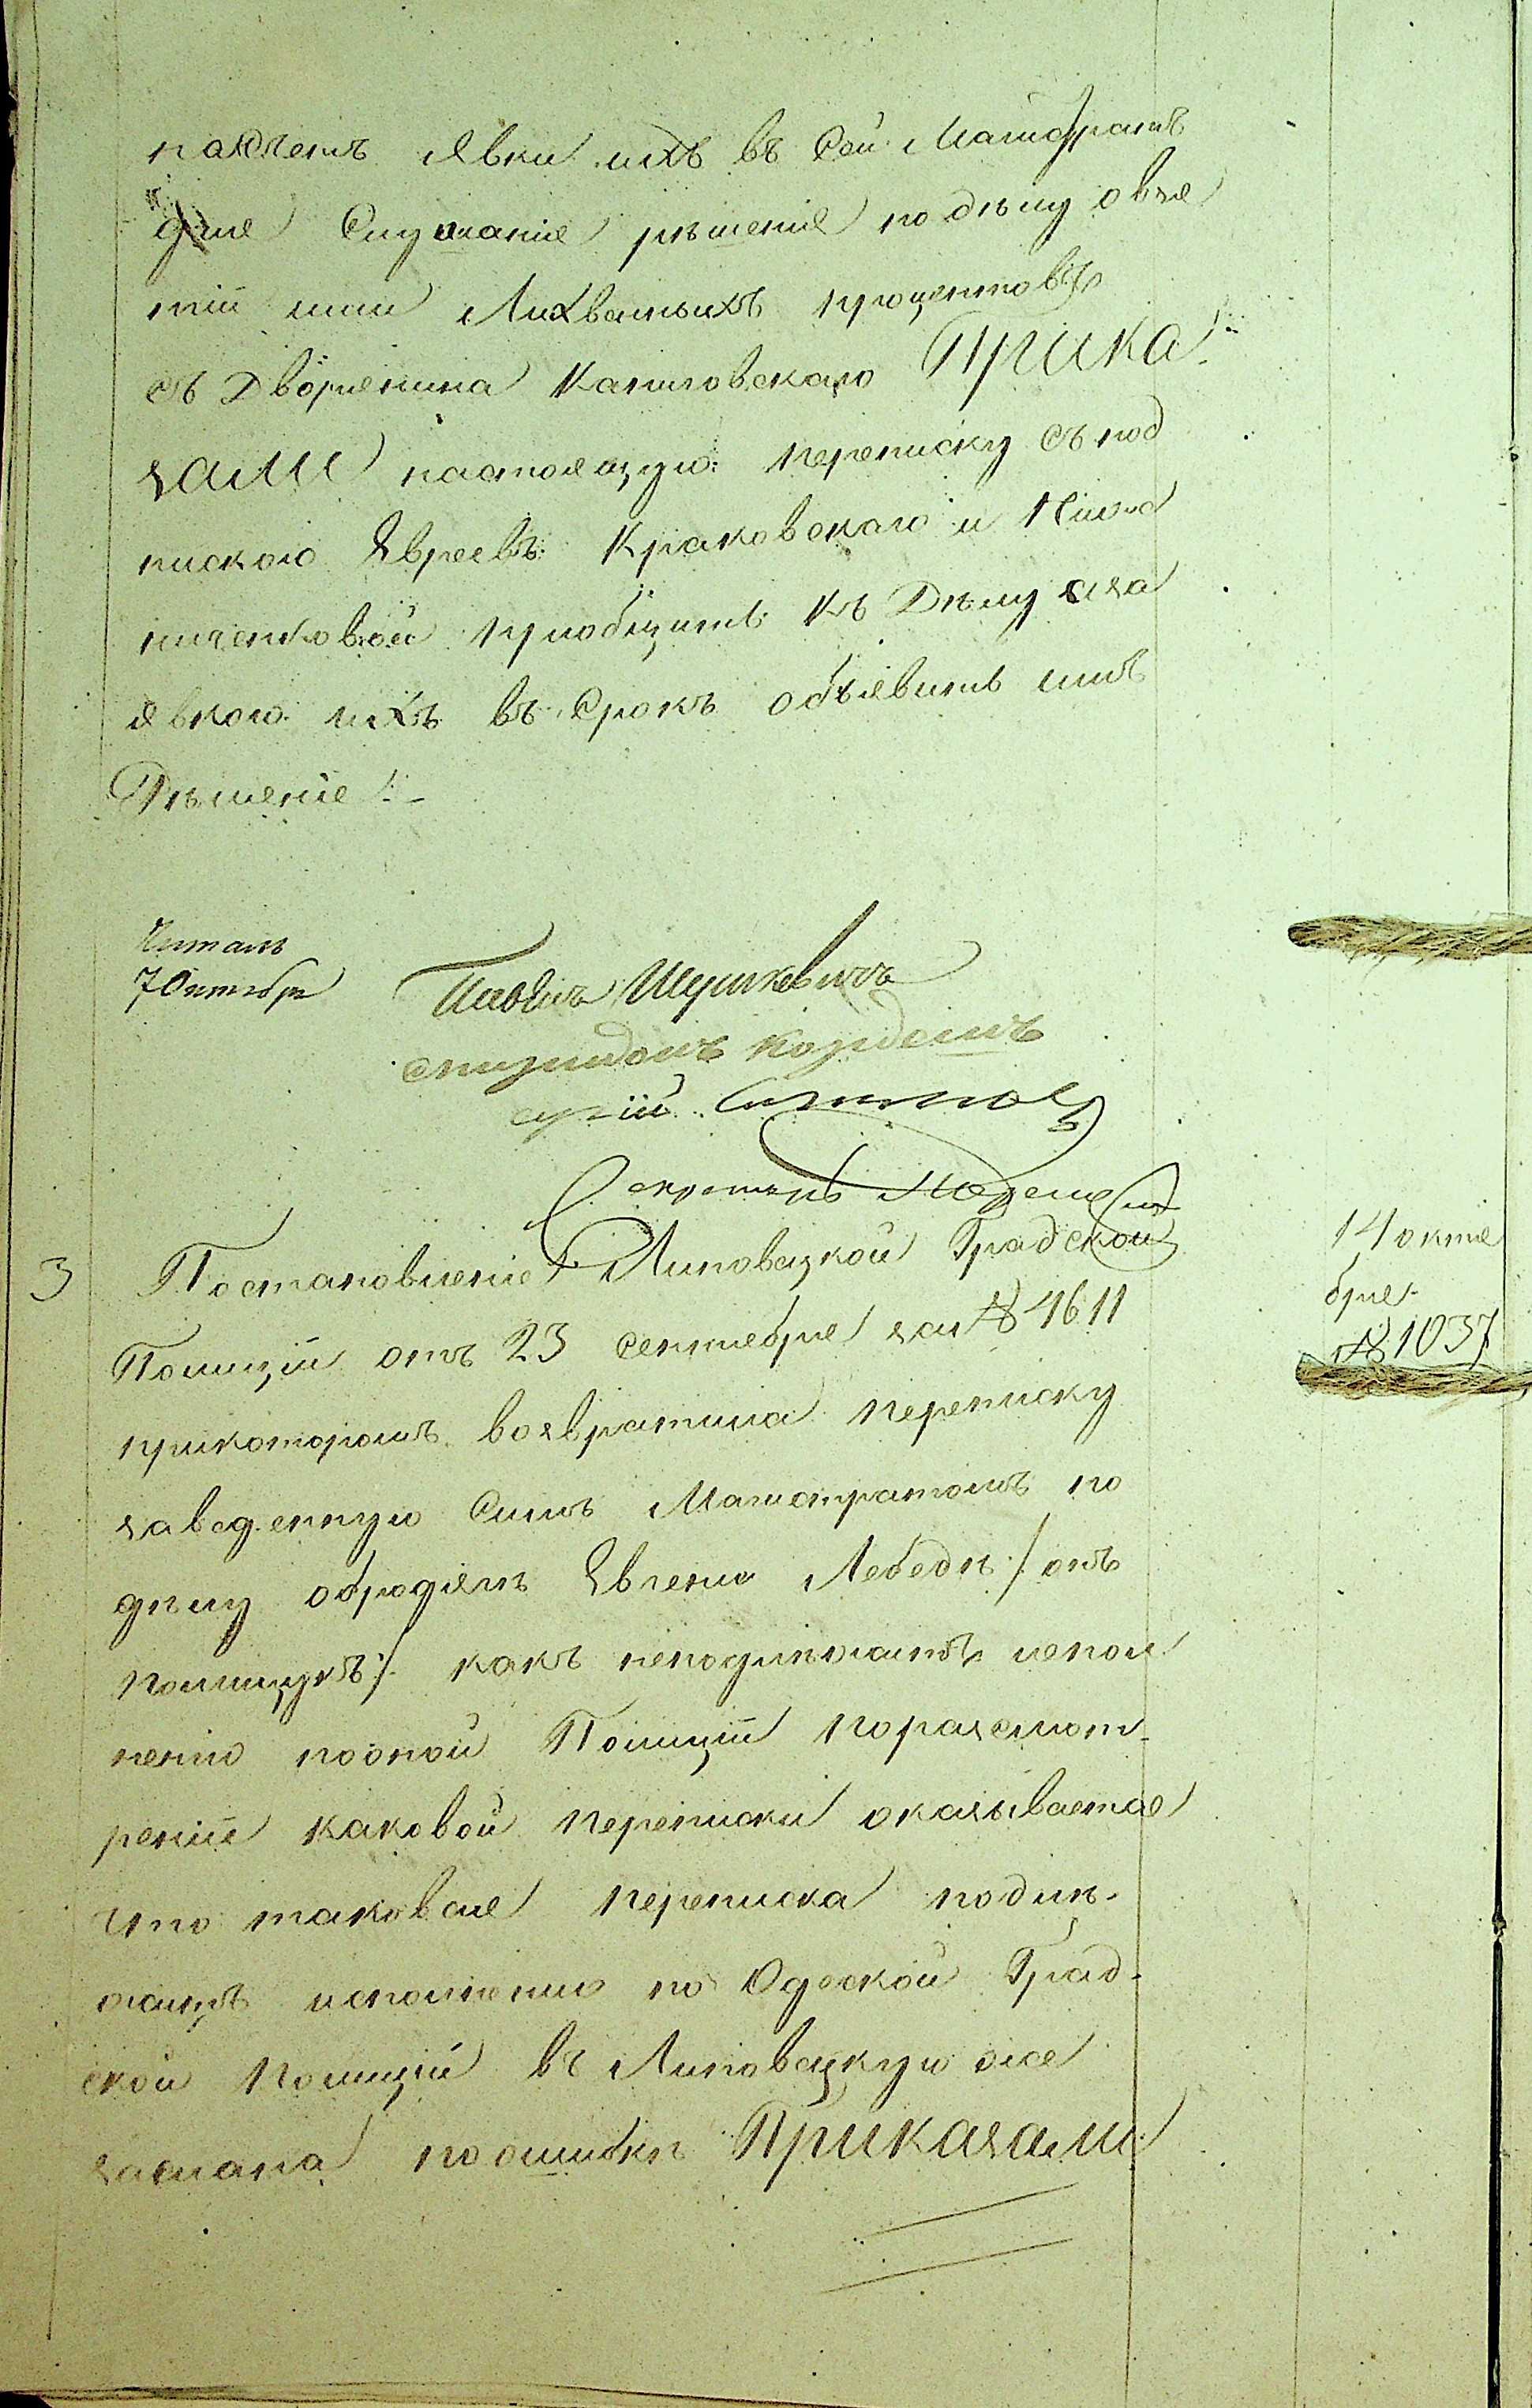 явки ихъ въ сей Магистратъ
для слушанія рѣшенія по дѣлу о взя
тіи ими Лихвенныхъ процентовъ
съ Дворянина Каниловскаго Прика
зали настоящую переписку съ под
пискою Евреевъ Краковскаго и
ниченковой пріобщить къ Дѣлу а за
явкою ихъ въ срокъ объявить имъ
Рѣшеніе
Читалъ
7 Октября
Павелъ Шушкевичъ
спиридонъ
Секретарь
3 Постановленіе Липовецкой Градской
14 октя
бря
№ 1037
Полиціи отъ 23 сентября за № 4611
прикоторомъ возвратила переписку
заведенную симъ Магистратомъ по
дѣлу обродягѣ Евгени Лебедѣ /: онъ
Полищукъ :/ какъ неподлѣжащую испол
ненію пооной Полиціи поразсмот-
реніи каковой переписки оказывается
что таковая переписка подлѣ-
жащѣ исполненію по Одеской Град-
ской полиціи въ Липовецкую же
заслана поошибкѣ Приказали